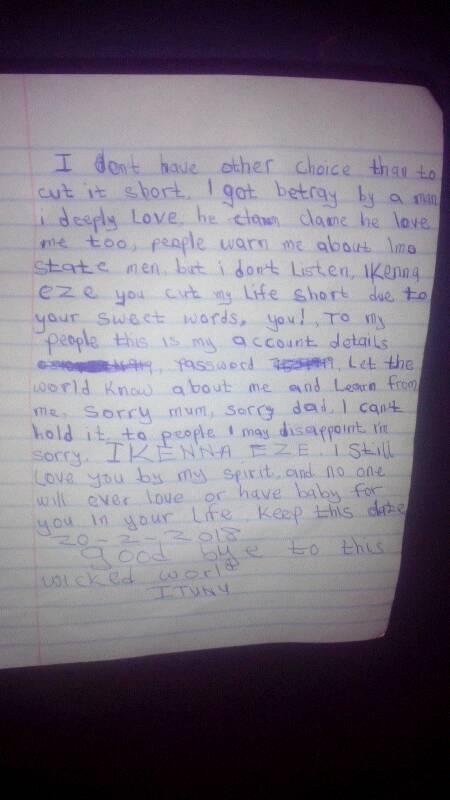 I dont have other choice than to
cut it short. I got betray by a man
i deeply Love. he clame he love
me too, people warn me about Imo
state men, but i dont Listen, IKenna
eze you cut my Life short due to
your sweet words, you!, To my
people this is my account details
password Let the
world know about me and Learn from
me. Sorry mum, sorry dad, I cant
hold it, to people I may disappoint i'm
sorry. IKENNA EZE. I Still
Love you by my spirit, and no one
will ever love or have baby for
you in your Life. Keep this date
20-2-2018
good bye to this
wicked world